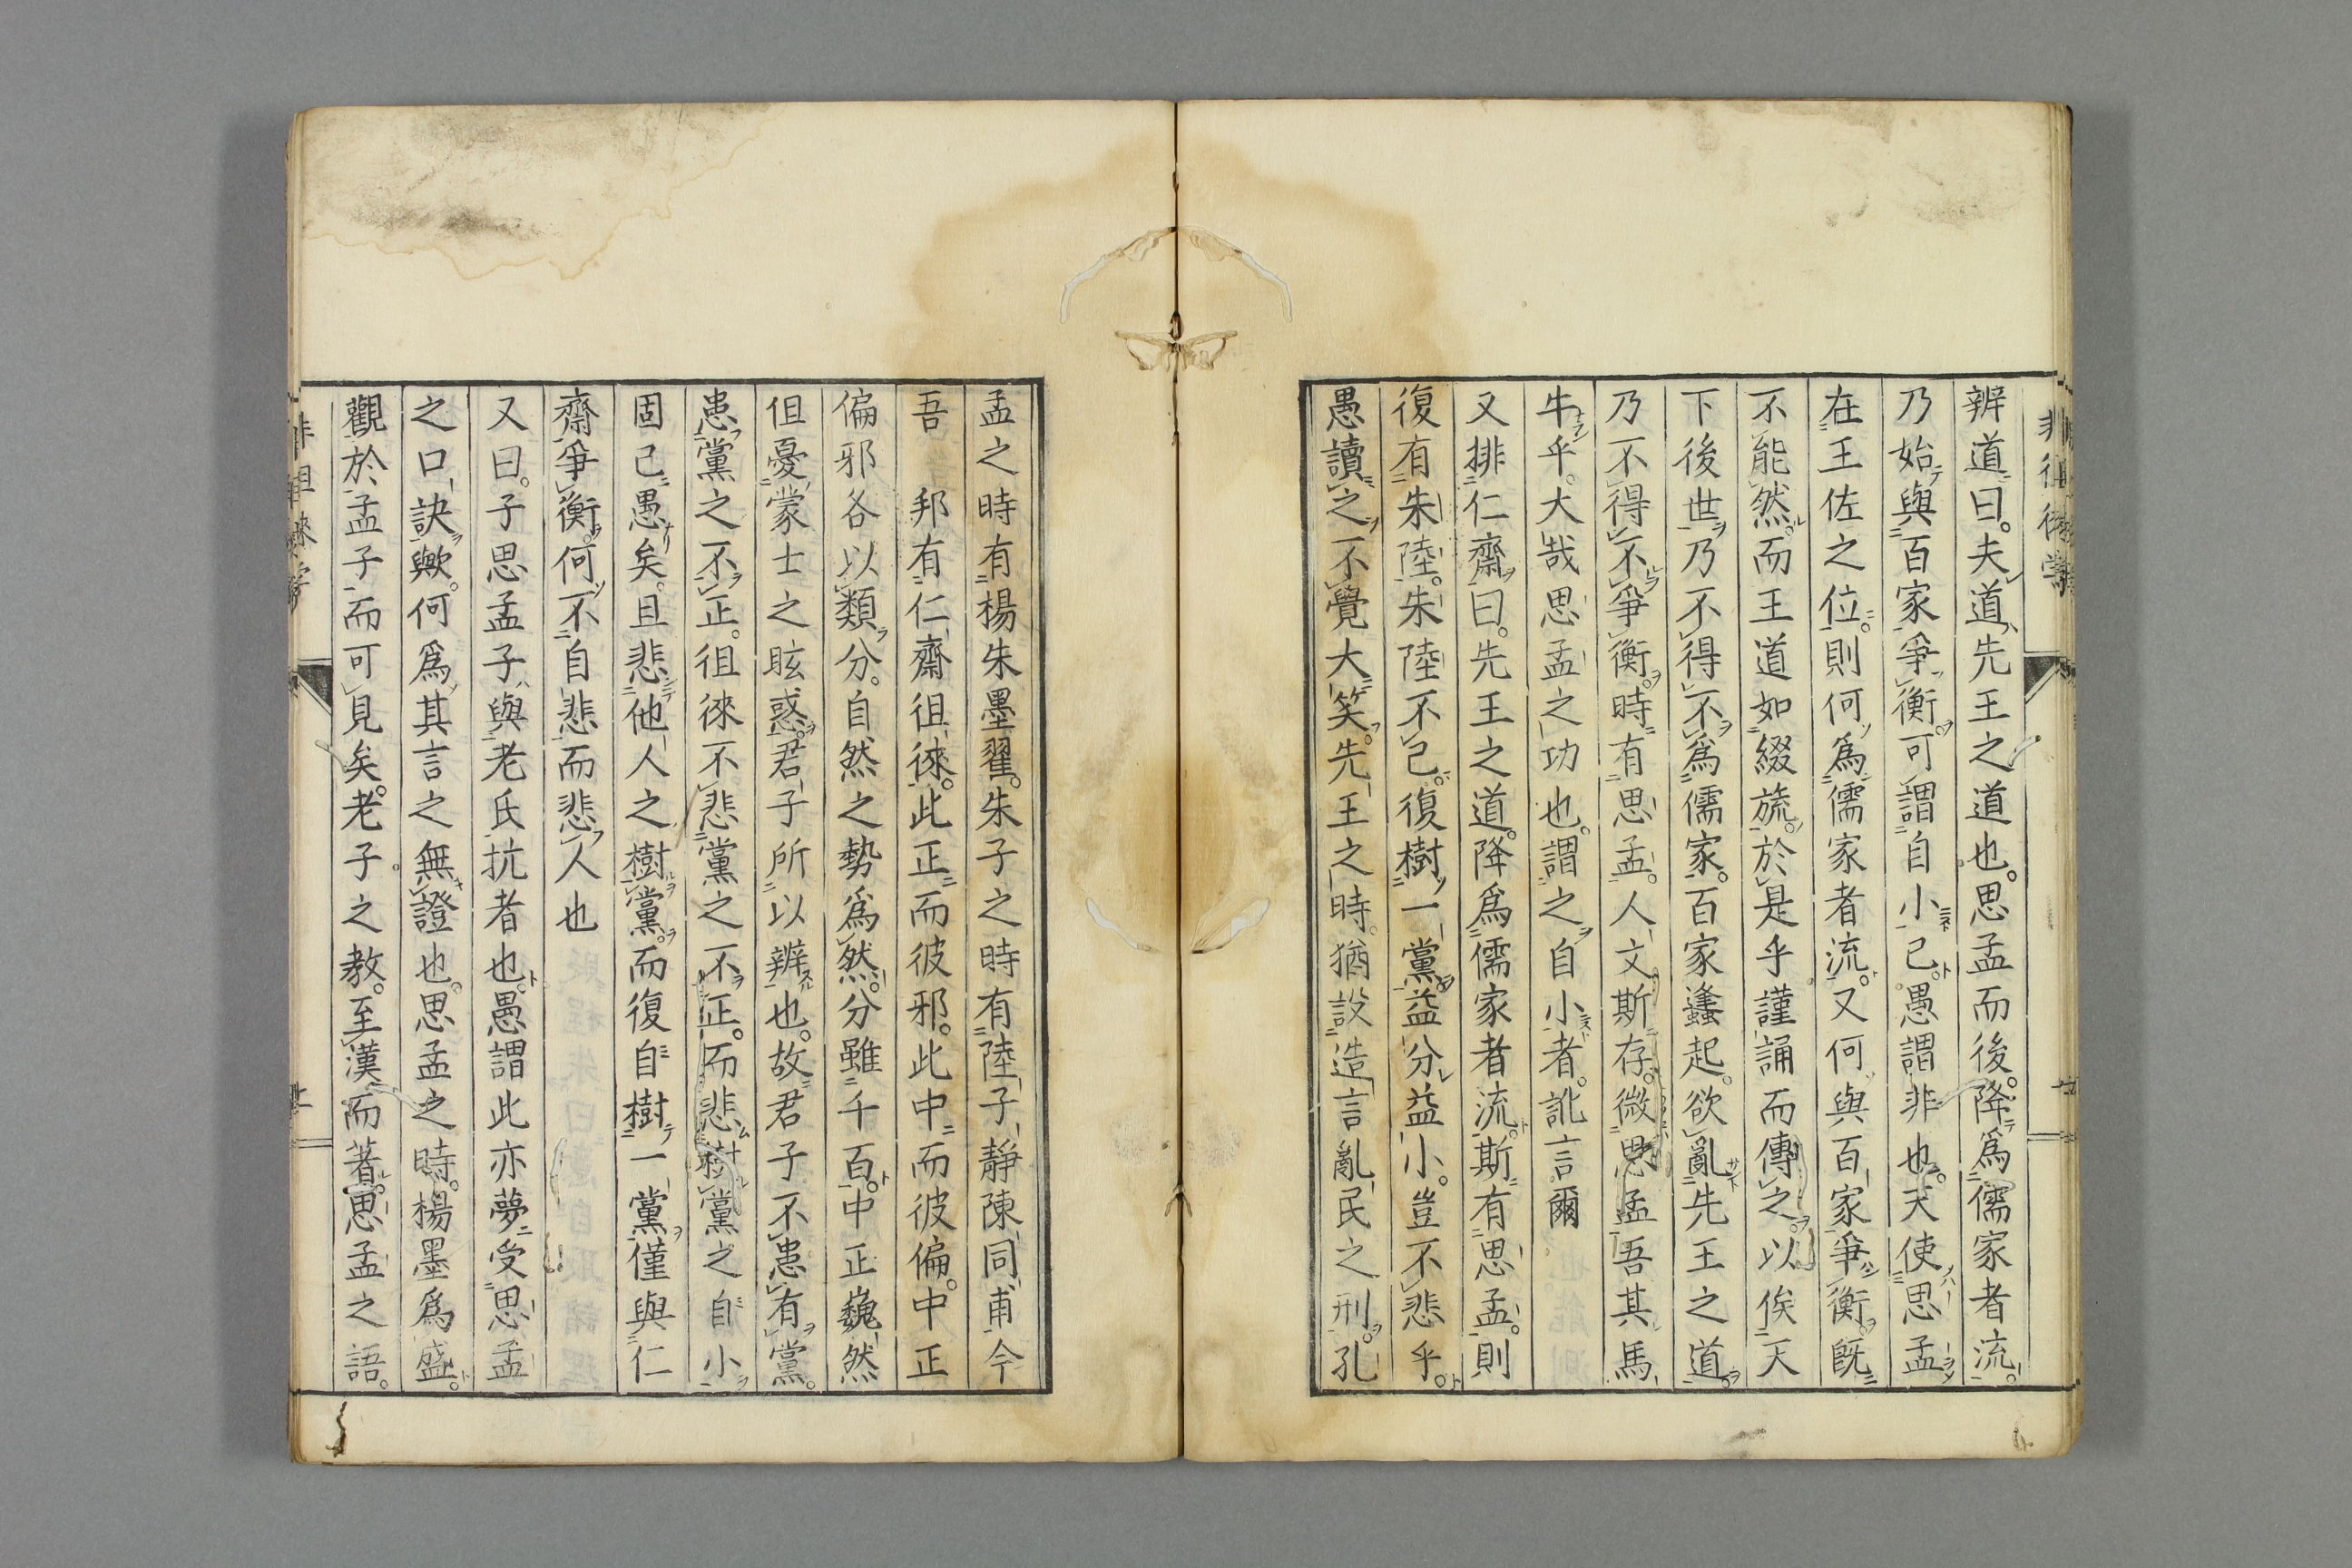 辨道曰。夫道、先王之道也。思孟而後。降爲儒家者流。
乃始與百家爭衡。可謂自小己。愚謂非也。天使思孟
在王佐之位。則何爲儒家者流。又何與百家爭衡。既
不能然。而王道如綴旒。於是乎謹誦而傳之。以俟天
下後世。乃不得不爲儒家。百家蠭起。欲亂先王之道。
乃不得不爭衡。時有思孟。人文斯存。微思孟吾其馬
牛乎。大哉思孟之功也。謂之自小者。訛言爾
又排仁齋曰。先王之道。降爲儒家者流。斯有思孟。則
復有朱陸。朱陸不已。復樹一黨。益分益小。豈不悲乎。
愚讀之不覺大笑。先王之時。猶設造言亂民之刑。孔
孟之時有楊朱墨翟。朱子之時有陸子靜陳同甫、今
吾 邦有仁齋徂徠。此正而彼邪。此中而彼偏。中正
偏邪各以類分。自然之勢爲然。分雖千百。中正巍然
但憂蒙士之眩惑。君子所以辨也。故君子不患有黨。
患黨之不正。徂徠不悲黨之不正。而悲樹黨之自小
固已愚矣。且悲他人之樹黨。而復自樹一黨。僅與仁
齋爭衡。何不自悲而悲人也
又曰。子思孟子、與老氏抗者也。愚謂此亦夢受思孟
之口訣歟。何爲其言之無證也。思孟之時。楊墨爲盛。
觀於孟子而可見矣。老子之教。至漢而著。思孟之語。